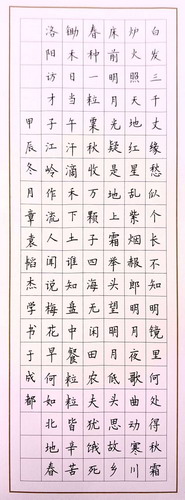 白发三千丈缘愁似个长不知明镜里何处得秋霜
炉火照天地红星乱紫烟赧郎明月夜歌曲动寒川
床前明月光疑是地上霜举头望明月低头思故乡
春种一粒粟秋收万颗子四海无闲田农夫犹饿死
锄禾日当午汗滴禾下土谁知盘中餐粒粒皆辛苦
洛阳访才子江岭作流人闻说梅花早何如北地春
甲辰冬月章袁韬杰学书于成都